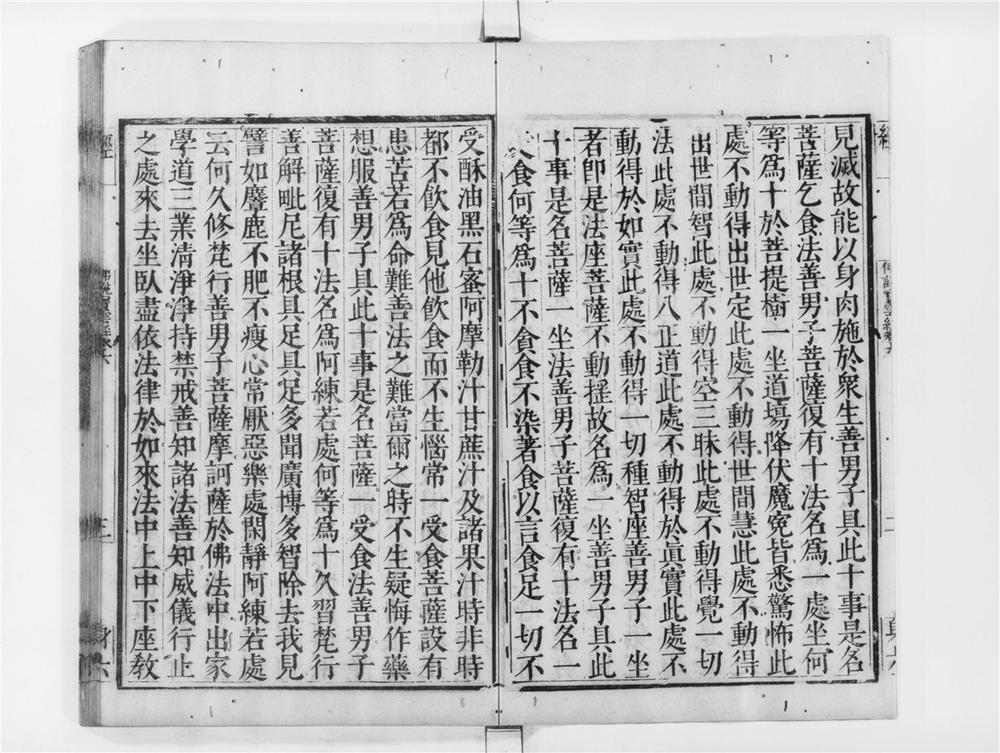 見滅故能以身肉施於衆生善男子具此十事是名
菩薩乞食法善男子菩薩復有十法名爲一處坐何
等爲十於菩提樹一坐道場降伏魔寃皆悉驚怖此
處不動得出世定此處不動得世間慧此處不動得
出世間智此處不動得空三昧此處不動得覺一切
法此處不動得八正道此處不動得於眞實此處不
動得於如實此處不動得一切種智座善男子一坐
者卽是法座菩薩不動摇故名爲一坐善男子具此
十事是名菩薩一坐法善男子菩薩復有十法名一
食何等爲十不貪食不染著食以言食足一切不
受酥油黑石蜜阿摩勒汁甘蔗汁及諸果汁時非時
都不飲食見他飲食而不生惱常一受食菩薩設有
患苦若爲命難善法之難當爾之時不生疑悔作藥
想服善男子具此十事是名菩薩一受食法善男子
菩薩復有十法名爲阿練若處何等爲十久習梵行
善解毗尼諸根具足具足多聞廣博多智除去我見
譬如麞鹿不肥不瘦心常厭惡樂處閑靜阿練若處
云何久修梵行善男子菩薩摩訶薩於佛法中出家
學道三業清淨淨持禁戒善知諸法善知威儀行止
之處來去坐臥盡依法律於如來法中上中下座敎
經
三
身六